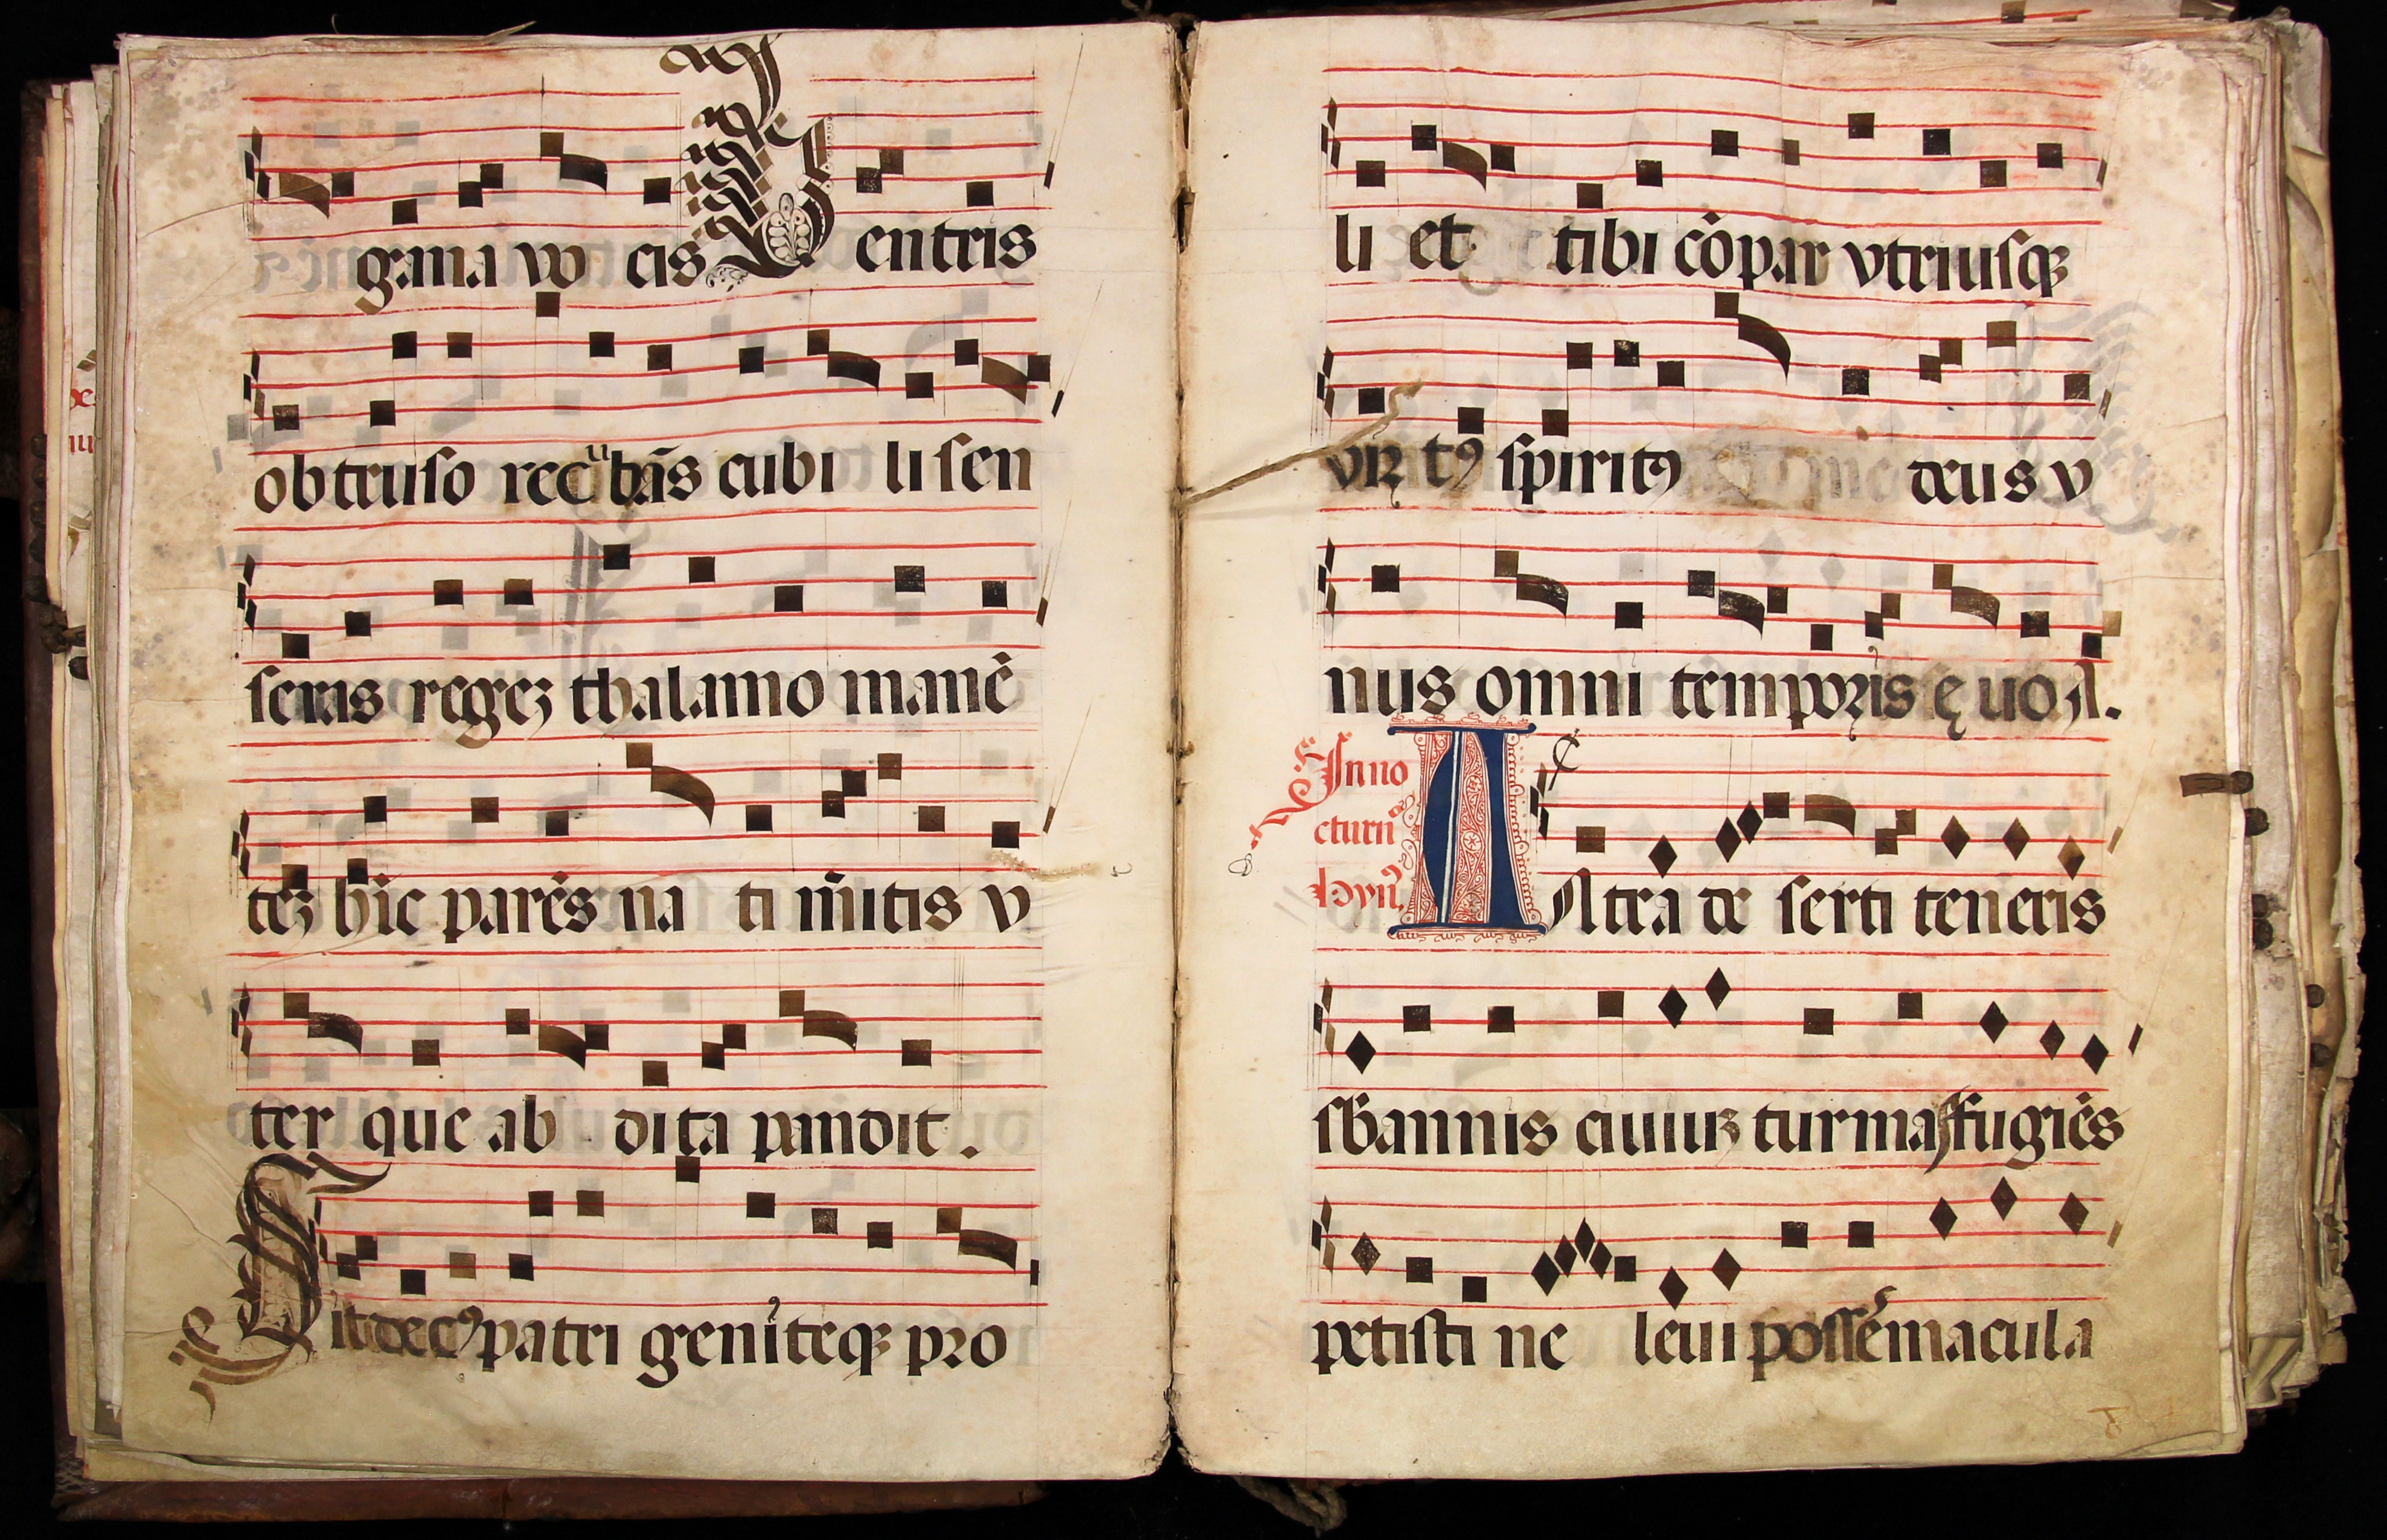 gana vo cis Ventris
obtruso recubãs cubi li sen
seras regeʒ thalamo manẽ
teʒ hĩc parẽs na ti mͥtis v
ter que ab dita pandit.
Sit decꝰ patri geniteqꝫ pro
li et tibi cõpar vtriusqꝫ
virtꝰ spiritꝰ deus v
nus omni temporis ęuo A.
In no
cturñ
hyñ.
Antra deserti teneris
sb annis ciuiuꝫ turmas fugiẽs
petisti ne leui possẽ macula